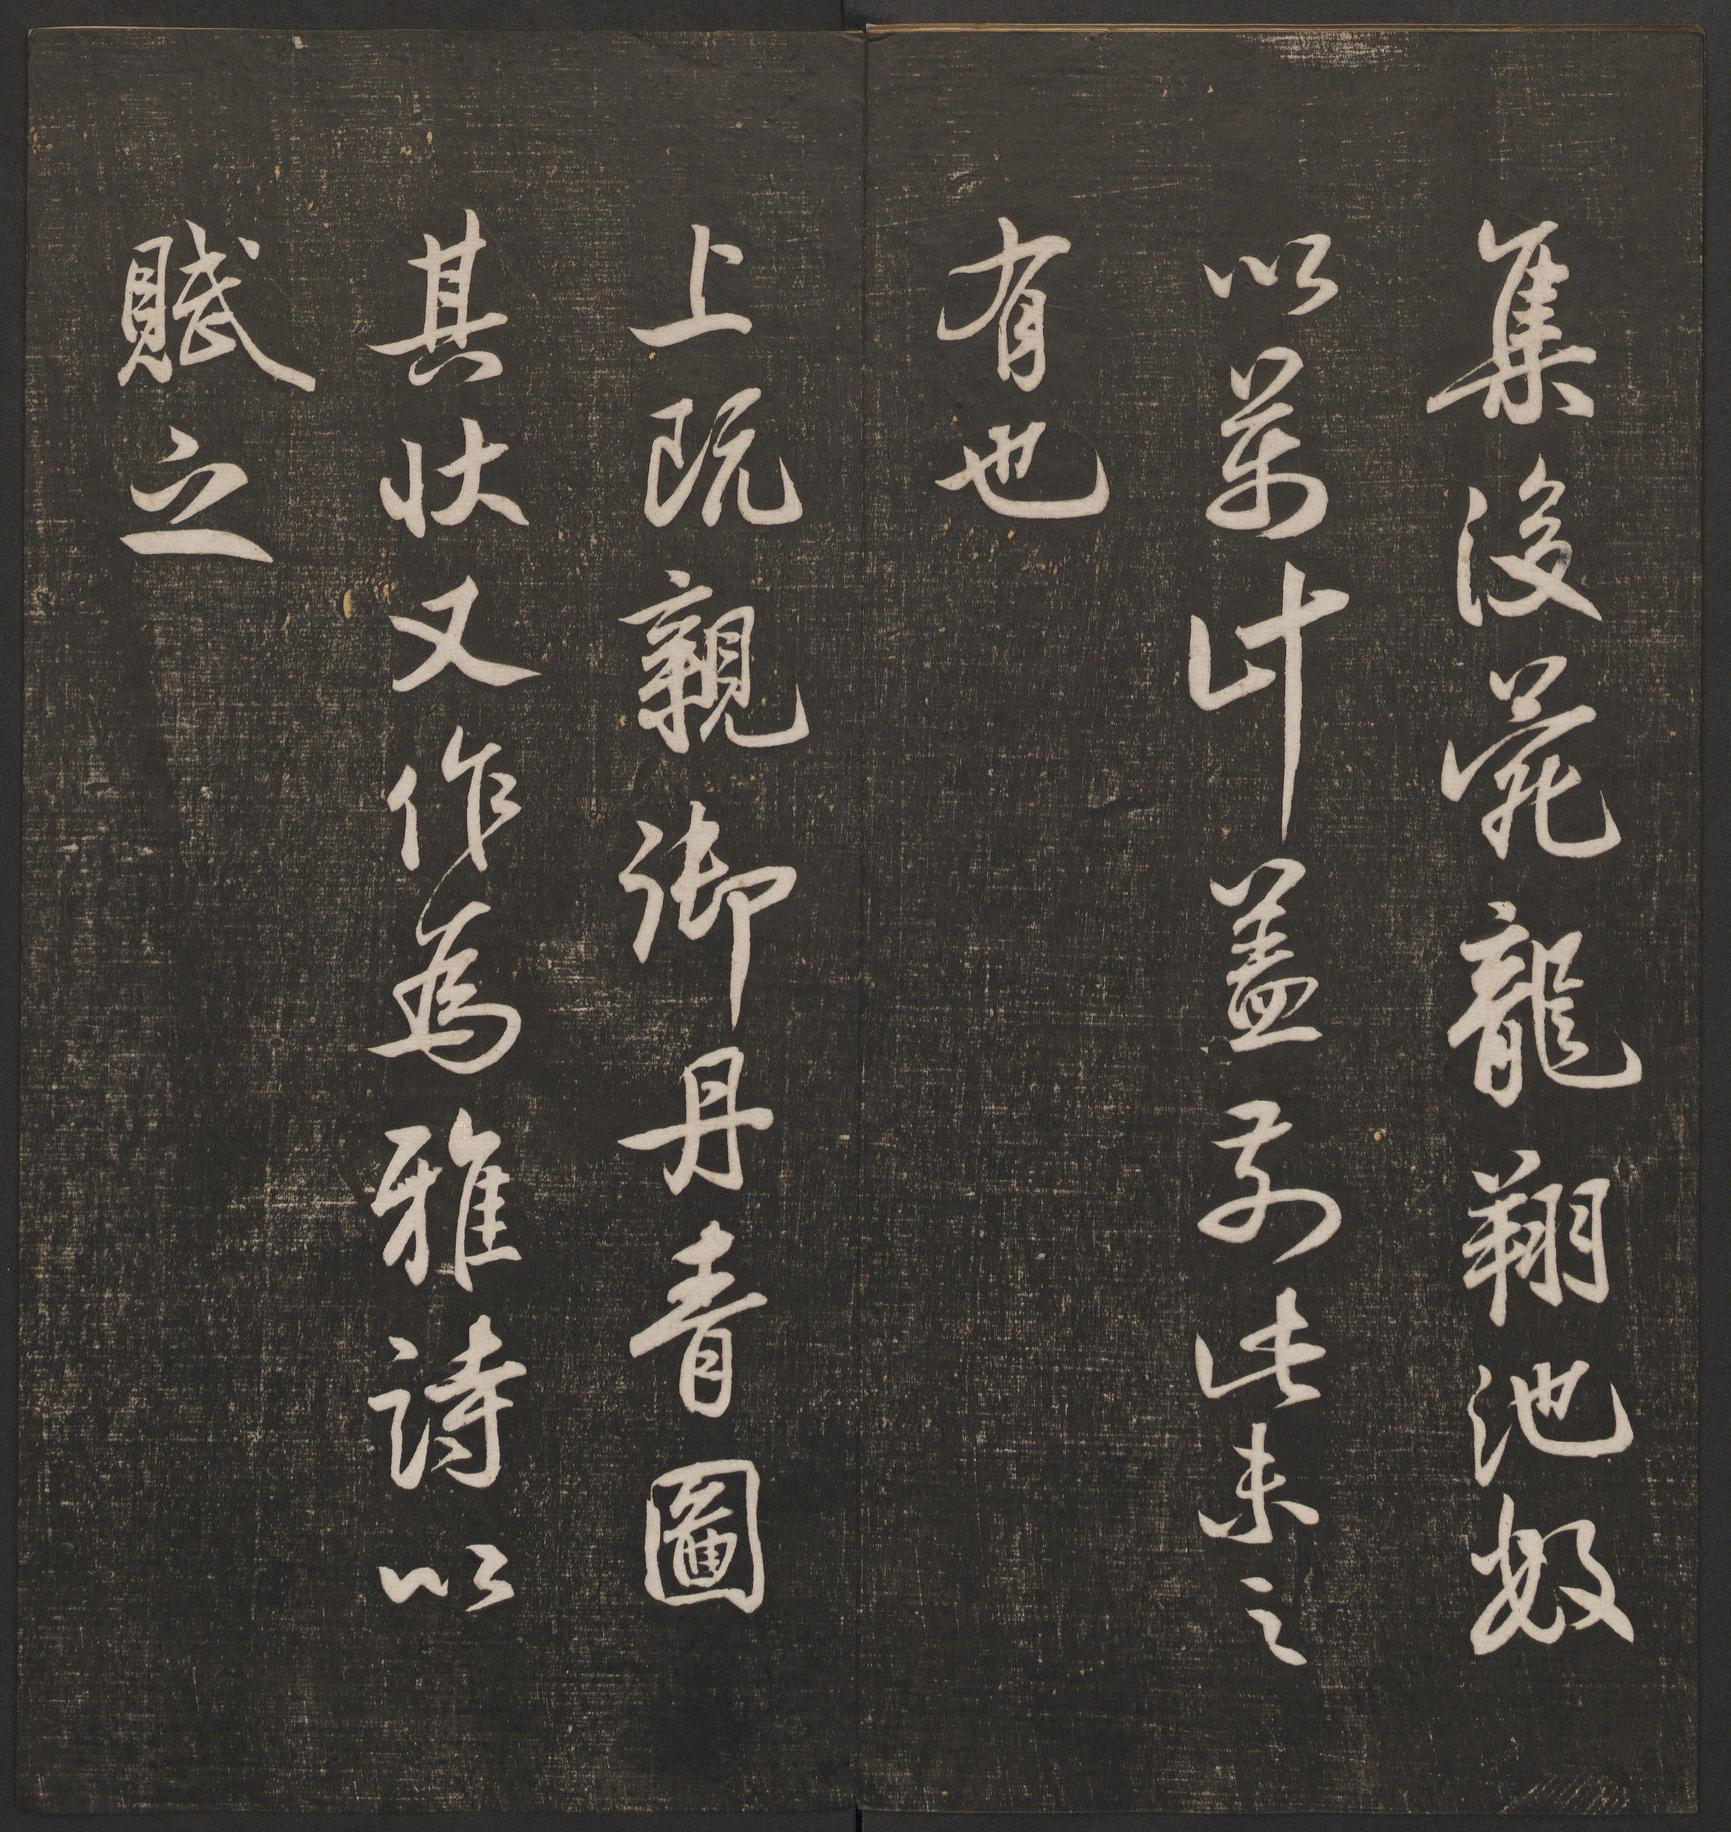 集後苑龍翔池數
以萬計蓋前此未之
有也
上既親御丹青圖
其狀又作為雅詩以
賦之